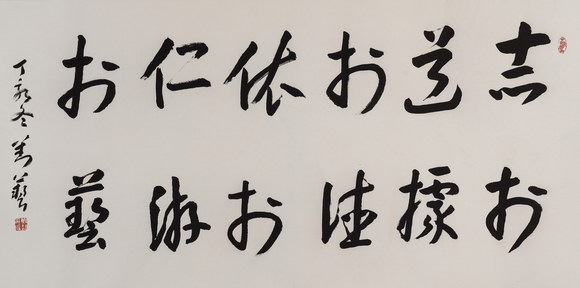 志於
道據
於德
依於
仁游
於藝
丁亥冬